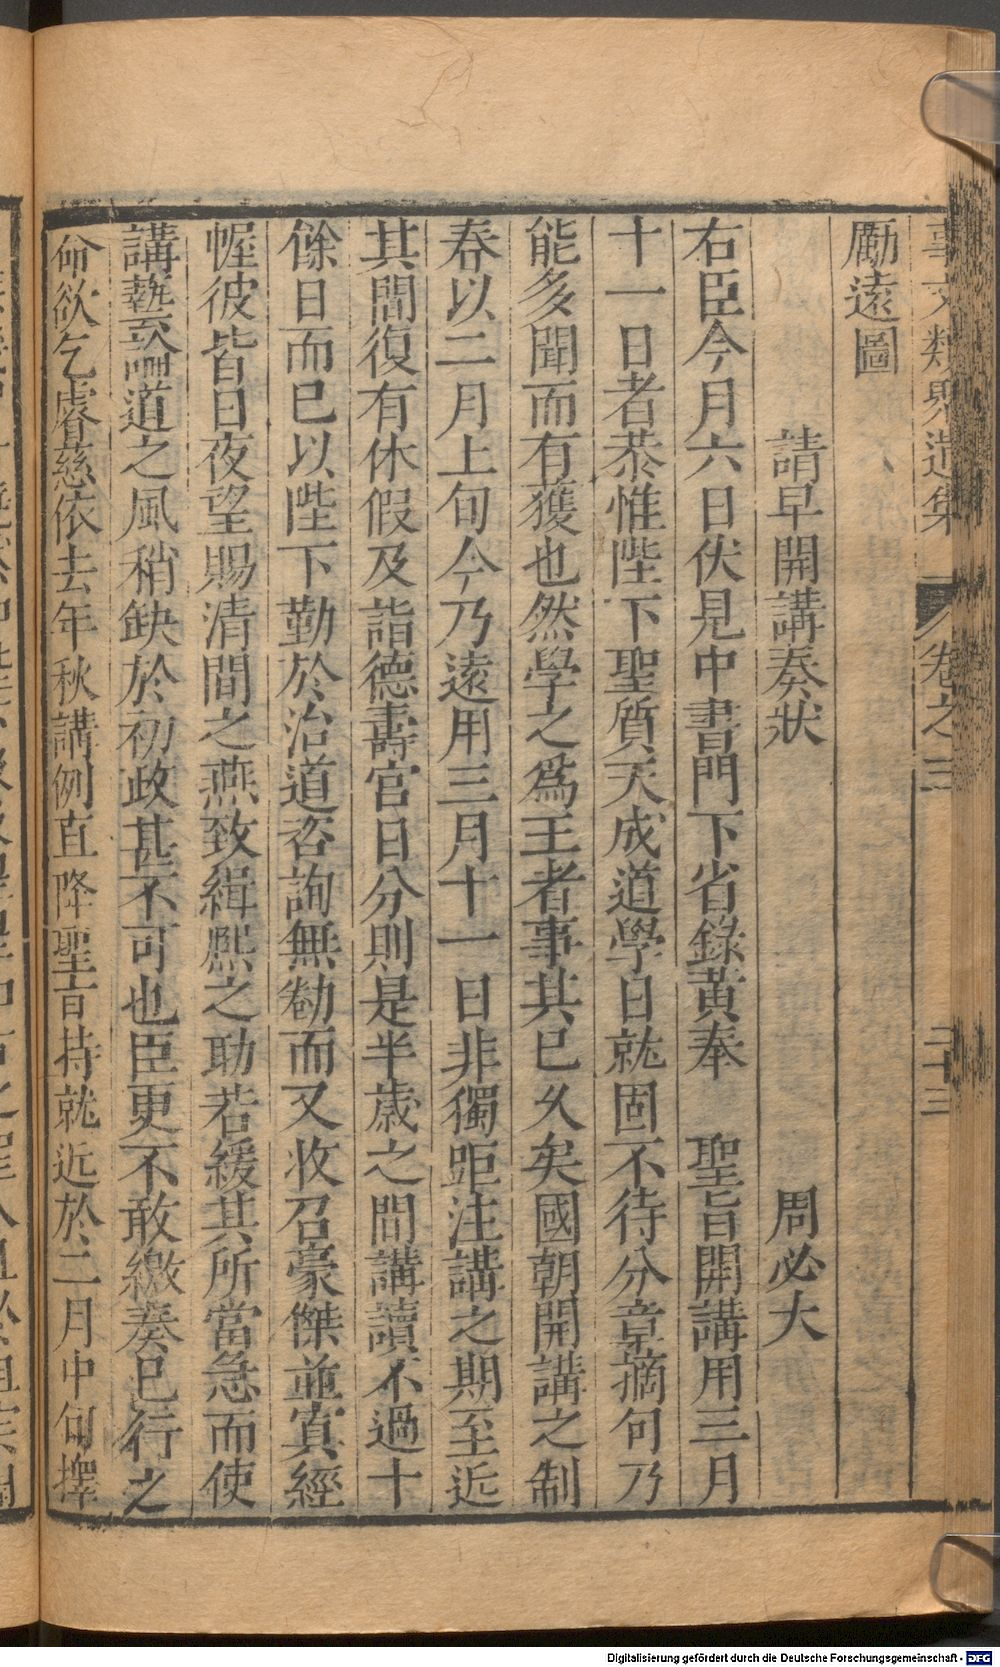 事文類聚遺集 卷之三 二十三
勵遠圖
請早開講奏狀 周必大
右臣今月六日伏見中書門下省錄黃奉 聖旨開講用三月
十一日者恭惟陛下聖質天成道學自就固不待分章摘句乃
能多聞而有獲也然學之爲王者事其已久矣國朝開講之制
春以二月上旬今乃遠用三月十一日非獨距注講之期至近
其間復有休假及詣德壽宮日分則是半歲之間講讀不過十
餘日而已以陛下勤於治道咨詢無勌而又收召豪傑並寘經
幄彼皆日夜望賜清間之燕致緝熙之助若緩其所當急而使
講藝論道之風稍缺於初政甚不可也臣更不敢繳奏已行之
命欲乞睿慈依去年秋講例直降聖旨持就近於二月中旬擇
Digitalisierung gefördert durch die Deutsche Forschungsgemeinschaft - DFG